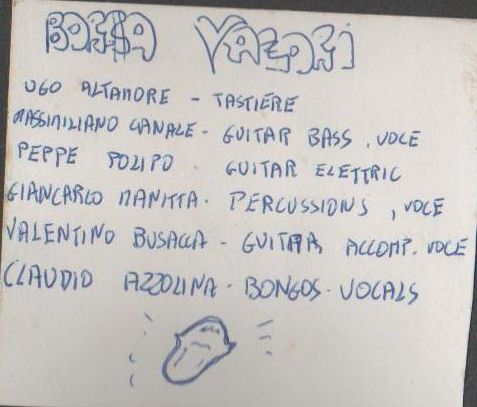 BORSA VALORI
UGO ALTAMORE - TASTIERE
MASSIMILIANO CANALE - GUITAR BASS, VOCE
PEPPE POLIPO - GUITAR ELETTRIC
GIANCARLO MANITTA - PERCUSSIONS, VOCE
VALENTINO BUSACCA - GUITAR ACCOMP. VOCE
CLAUDIO AZZOLINA - BONGOS - VOCALS